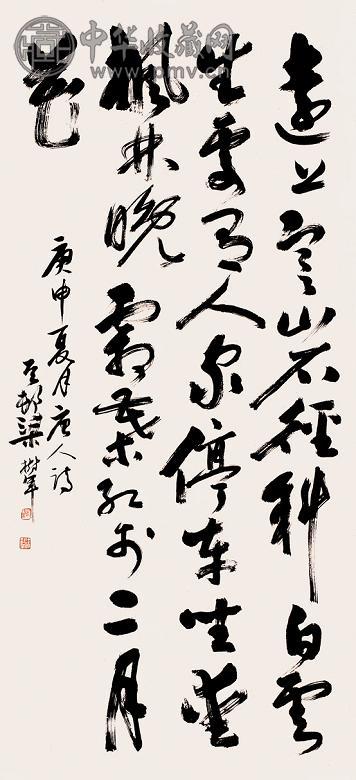 中华收藏网
www.pmv.cn
遠上寒山石徑斜白雲
生處有人家停車坐愛
楓林晚霜葉紅於二月
花
庚申夏月唐人詩
豆邨梁樹年